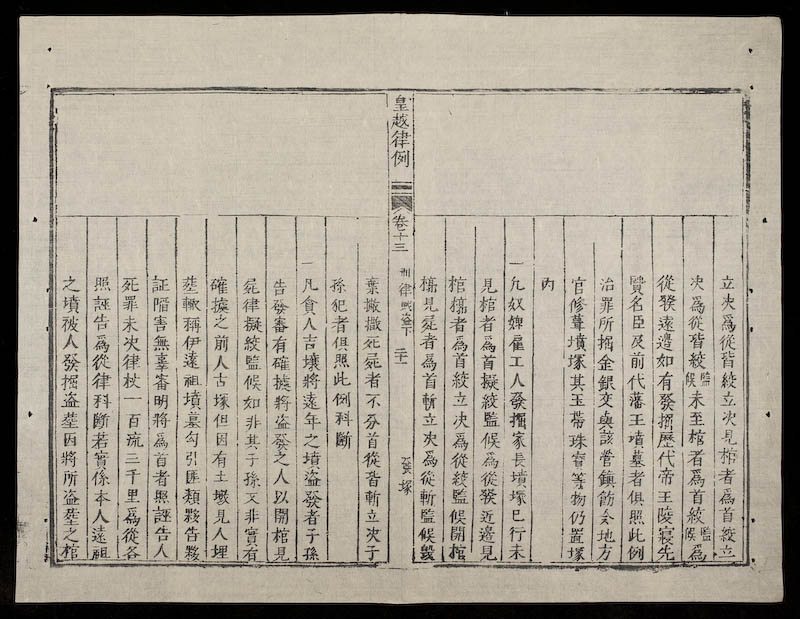 立决爲從皆絞立决見棺者爲首絞立
决爲從皆絞監候未至棺者爲首絞監候爲
從發遠邊如有發掘歷代帝王陵寢先
賢名臣及前代藩王墳墓者俱照此例
治罪所掘金銀交與該營鎮飭令地方
官修葺墳塚其玉帶珠寶等物仍置塚
內
一凡奴婢雇工人發掘家長墳塚已行未
見棺者爲首擬絞監候爲從發近邊見
棺槨者爲首絞立决爲從絞監候開棺
槨見屍者爲首斬立决爲從斬監候毀
皇越律例
卷十三
刑律賊盜下
二十一
發塚
棄撇撒死屍者不分首從皆斬立决子
孫犯者俱照此例科斷
一凡貪人吉壤將遠年之墳盜發者子孫
告發審有確據將盜發之人以開棺見
屍律擬絞監候如非其子孫又非實有
確據之前人古塚但因有土墩見人埋
塟輒稱伊遠祖墳墓勾引匪類夥告夥
証陷害無辜審明將爲首者照誣告人
死罪未决律杖一百流三千里爲從各
照誣告爲從律科斷若實係本人遠祖
之墳被人發掘盜塟因將所盜塟之棺